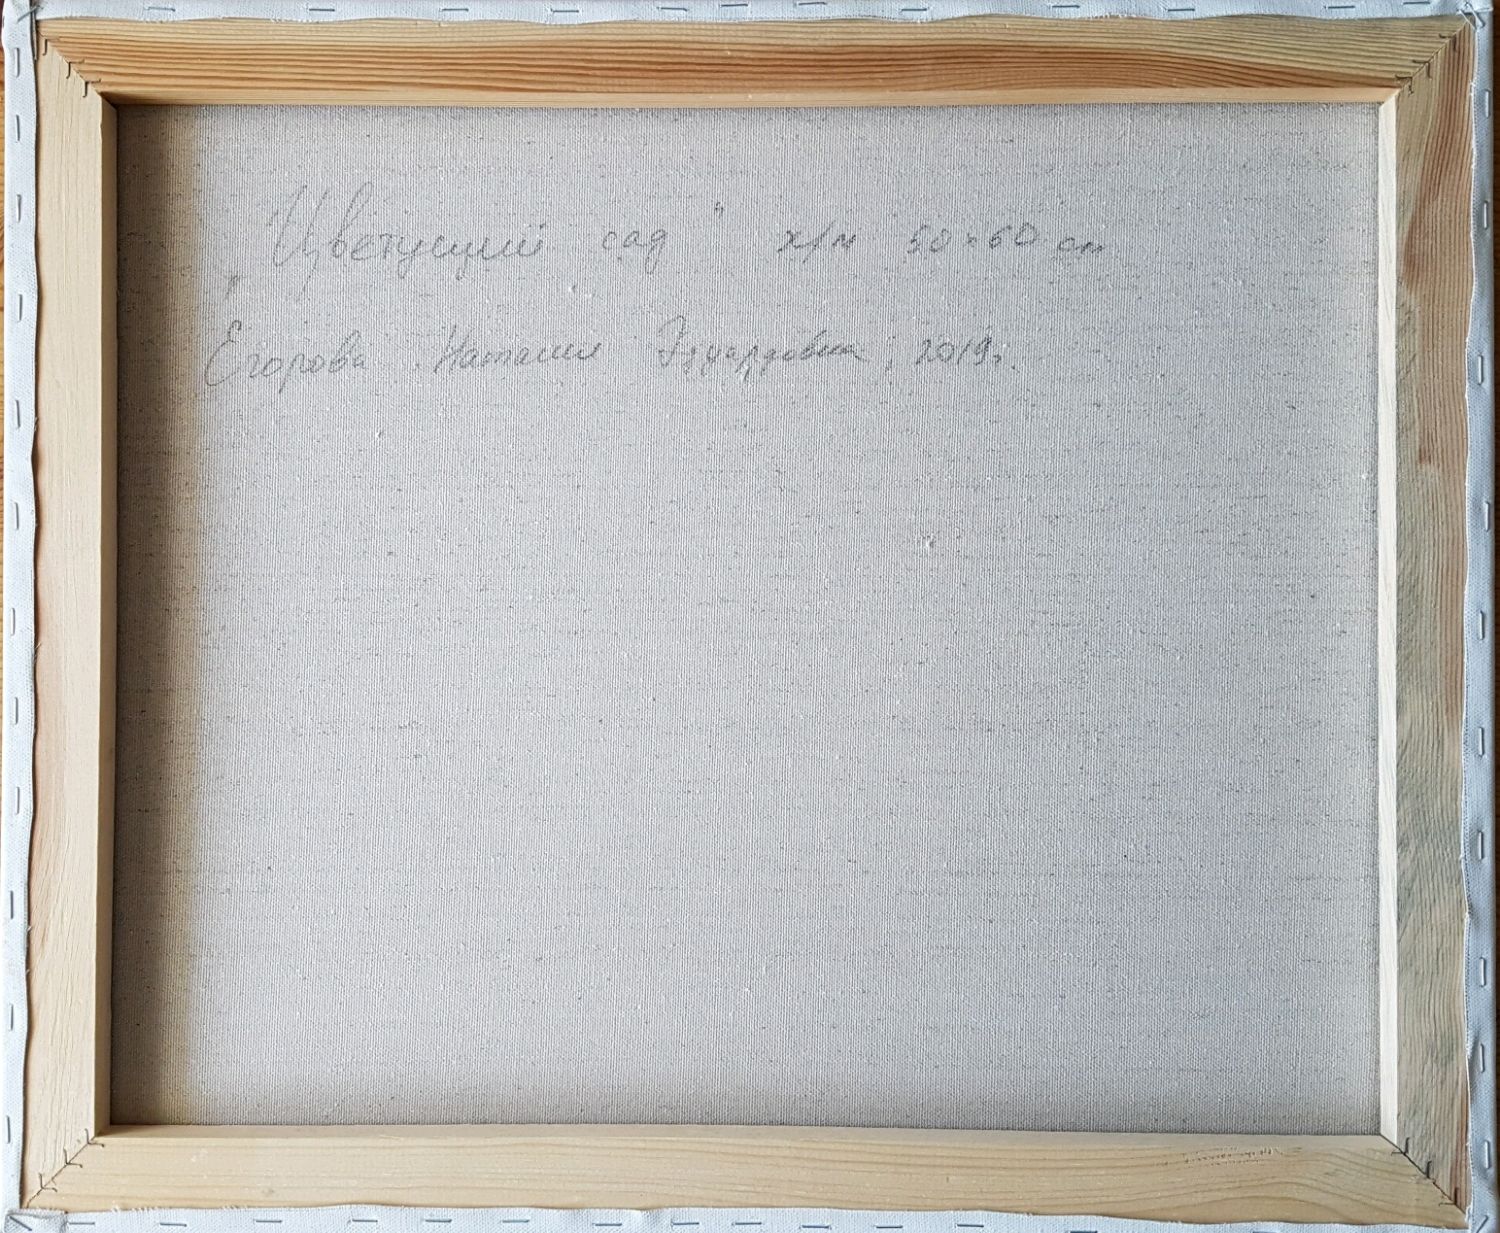 „Цветущий сад" х/м 50×60 см
Егорова Наталия Эдуардовна, 2019г.